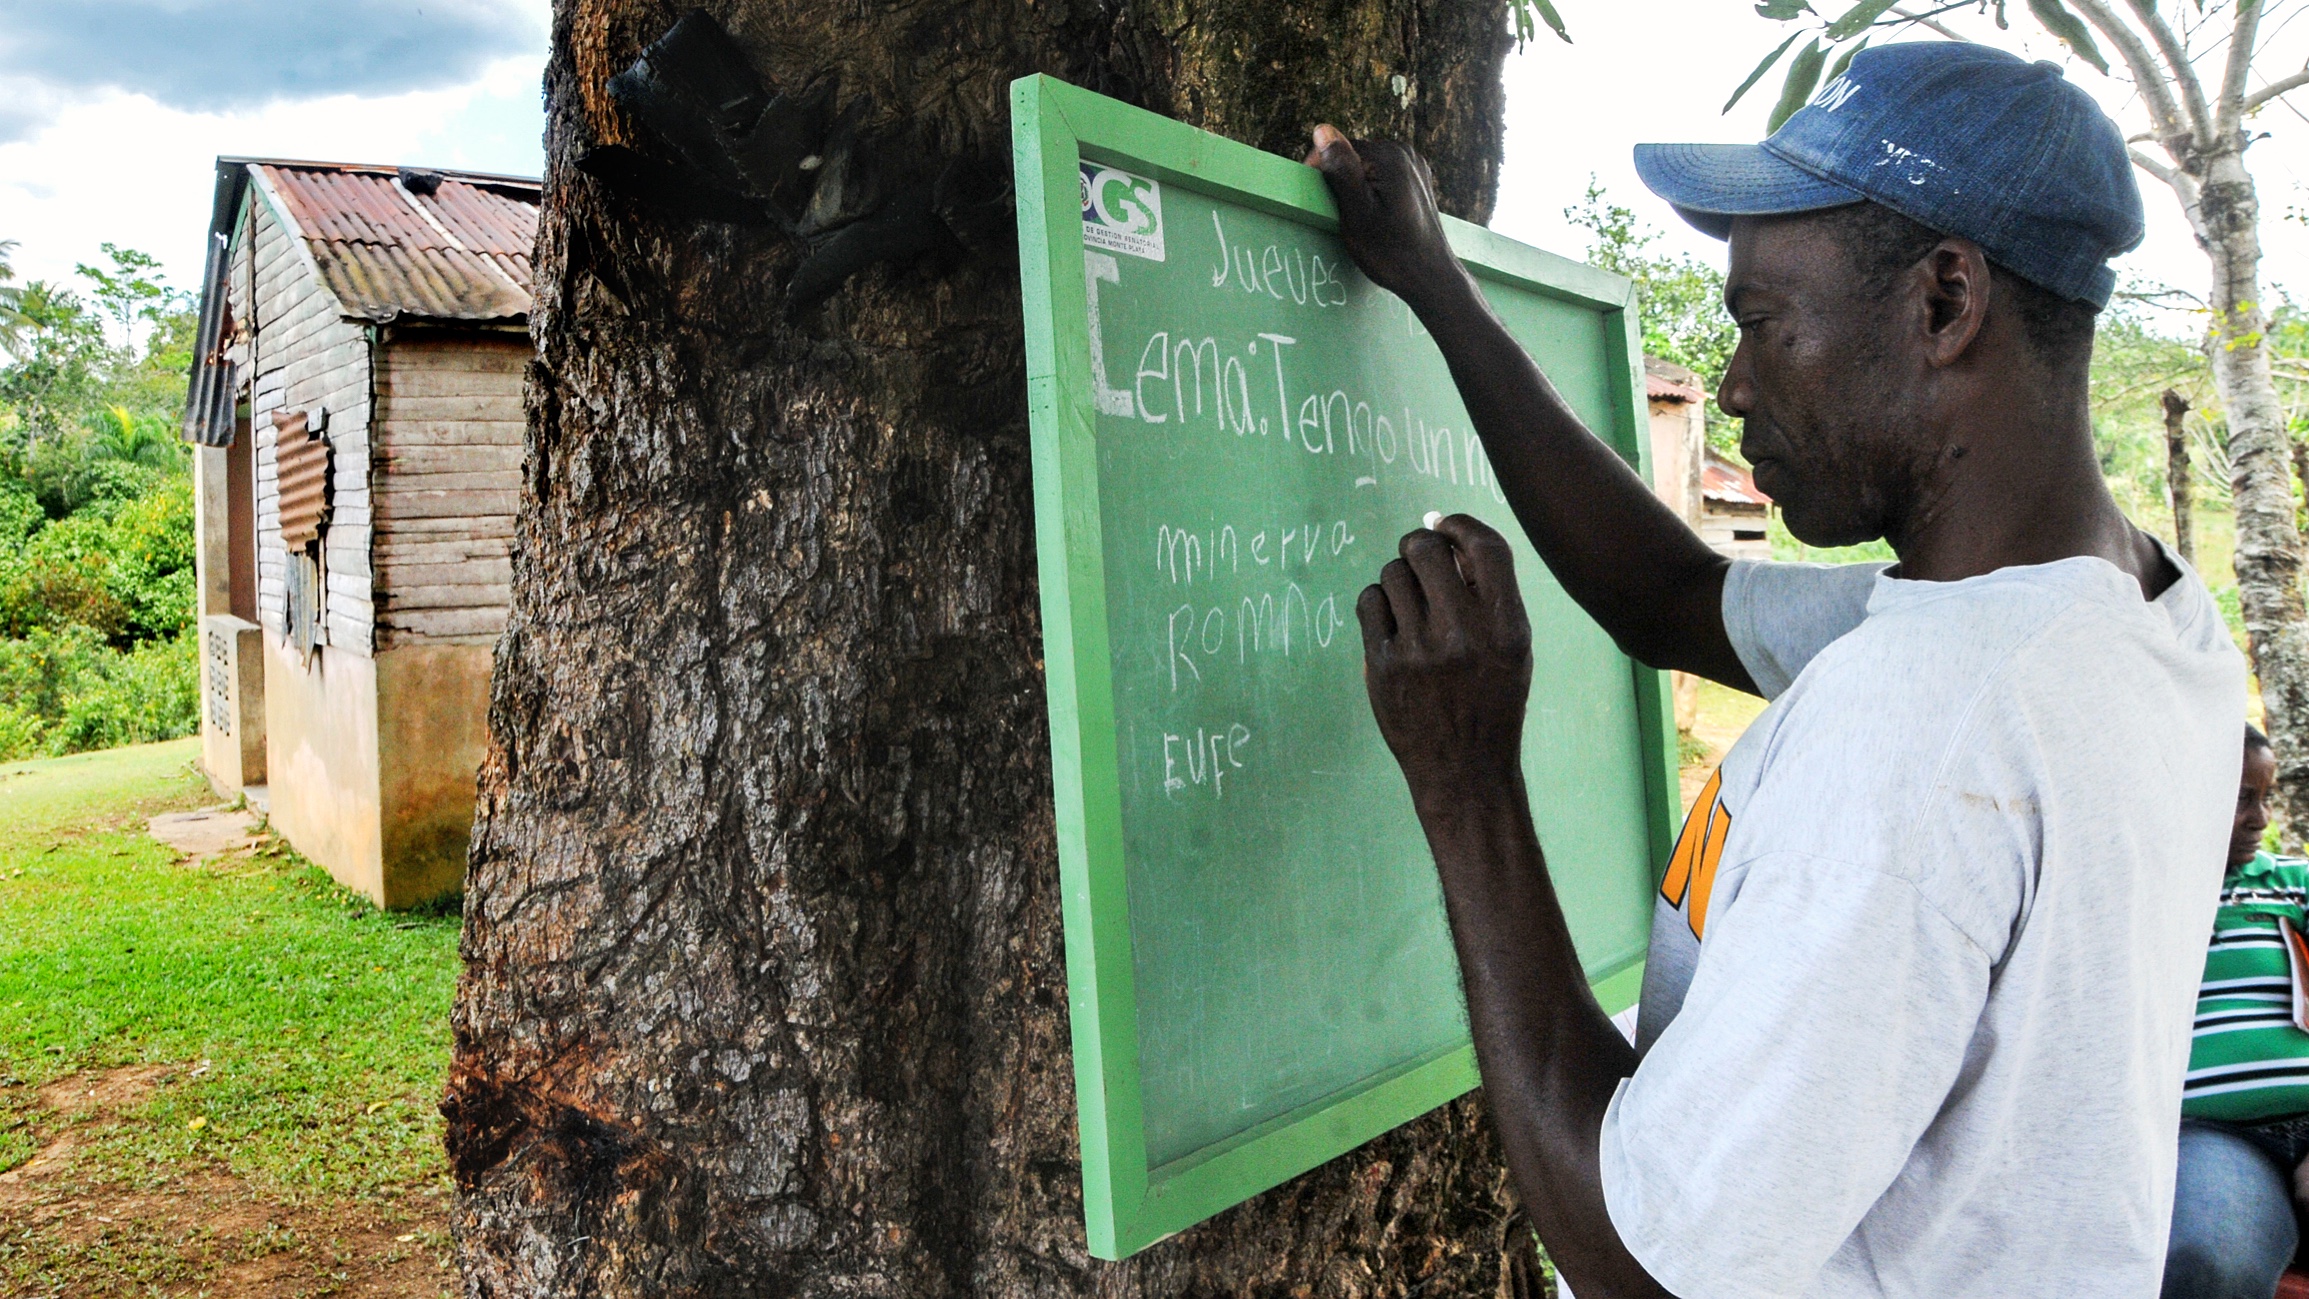 OGS
DE GESTION SENATORIAL
OVINCIA MONTE PLATA
Jueves
Lema: Tengo un
minerva
Romna
EUFe
ON
N